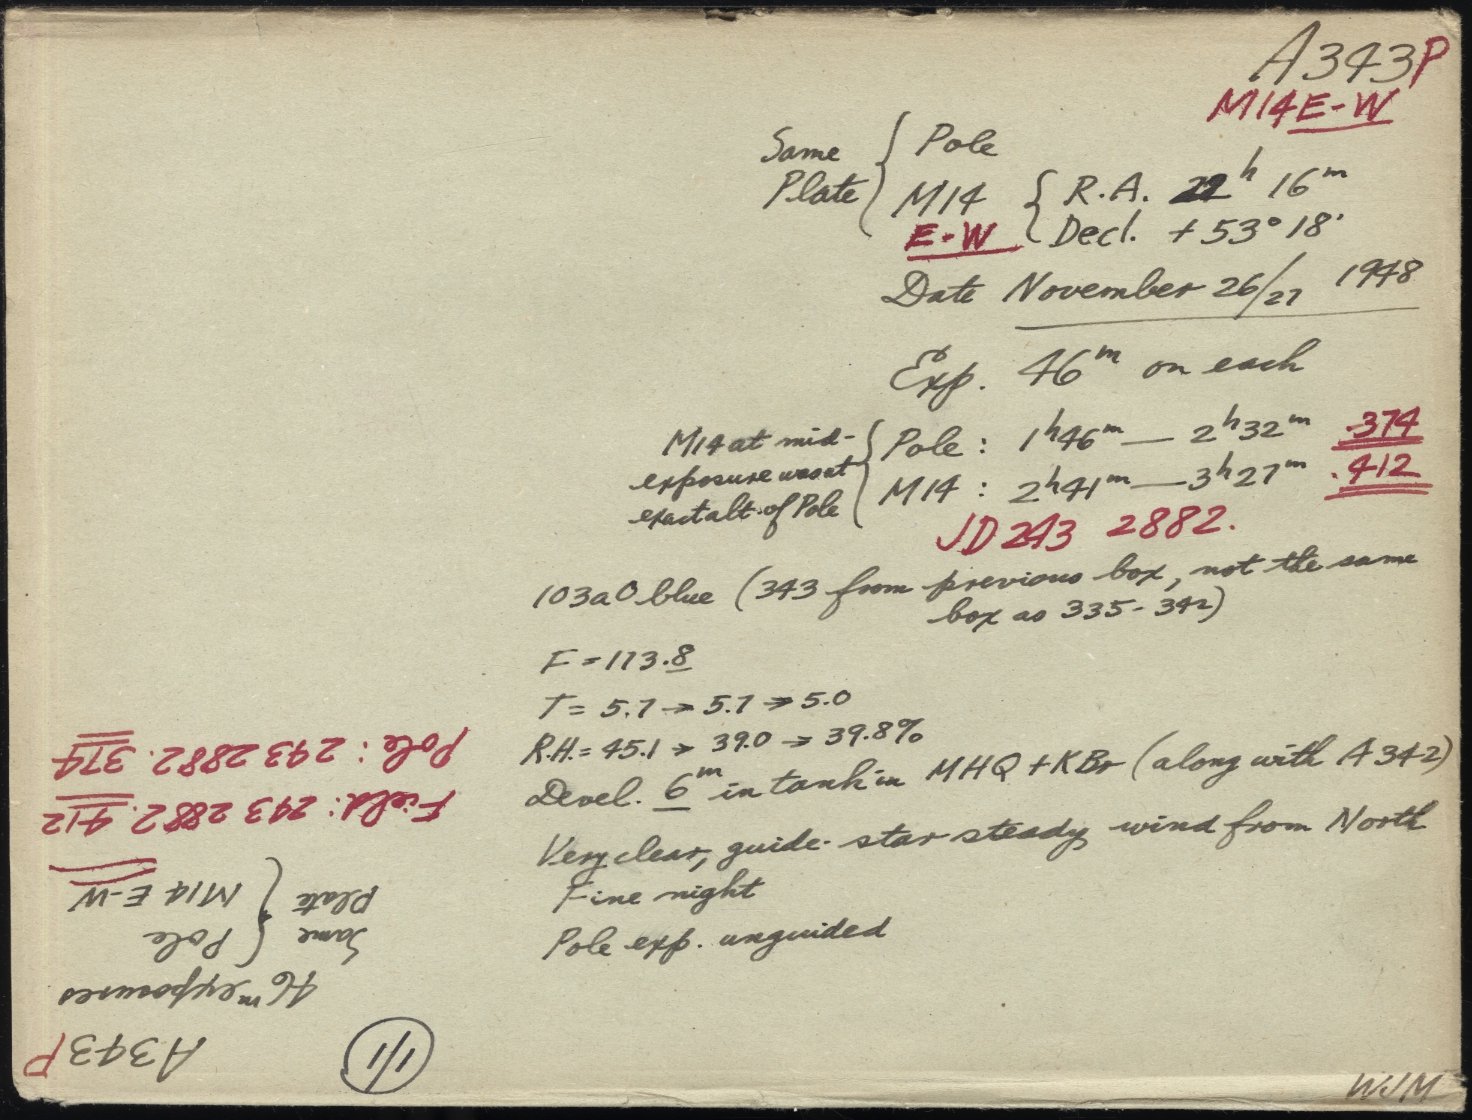 A343P
M14E-W
Same Plate { Pole
M14 { R.A. 22h 16m
E-W Decl. +53° 18'
Date November 26/27 1948
Exp. 46m on each
M14 at mid-exposure was at exact alt. of Pole
{ Pole: 1h46m — 2h32m .374
M14: 2h41m — 3h27m .412
JD 243 2882.
103aO blue (343 from previous box, not the same
box as 335-342)
F = 113.8
T = 5.7 → 5.7 → 5.0
R.H. = 45.1 → 39.0 → 39.8%
Devel. 6m in tank in MHQ + KBr (along with A342)
Very clear, guide-star steady wind from North
Fine night
Pole exp. unguided
WJM
1/1
A343P
46m exposures
Same Plate { Pole
M14 E-W
Field: 243 2882.412
Pole: 243 2882.374